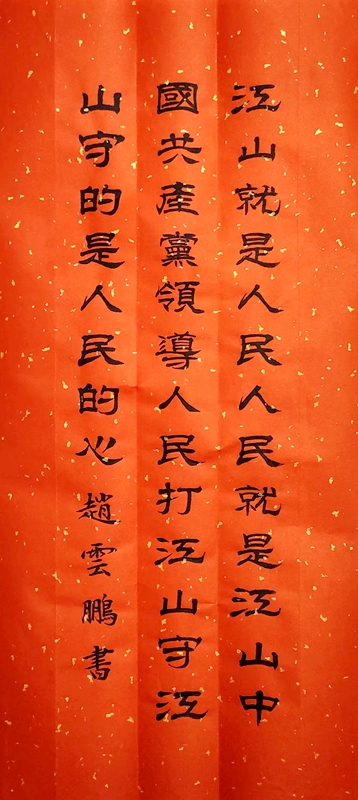 江山就是人民人民就是江山中
國共產黨領導人民打江山守江
山守的是人民的心 趙雲鵬書